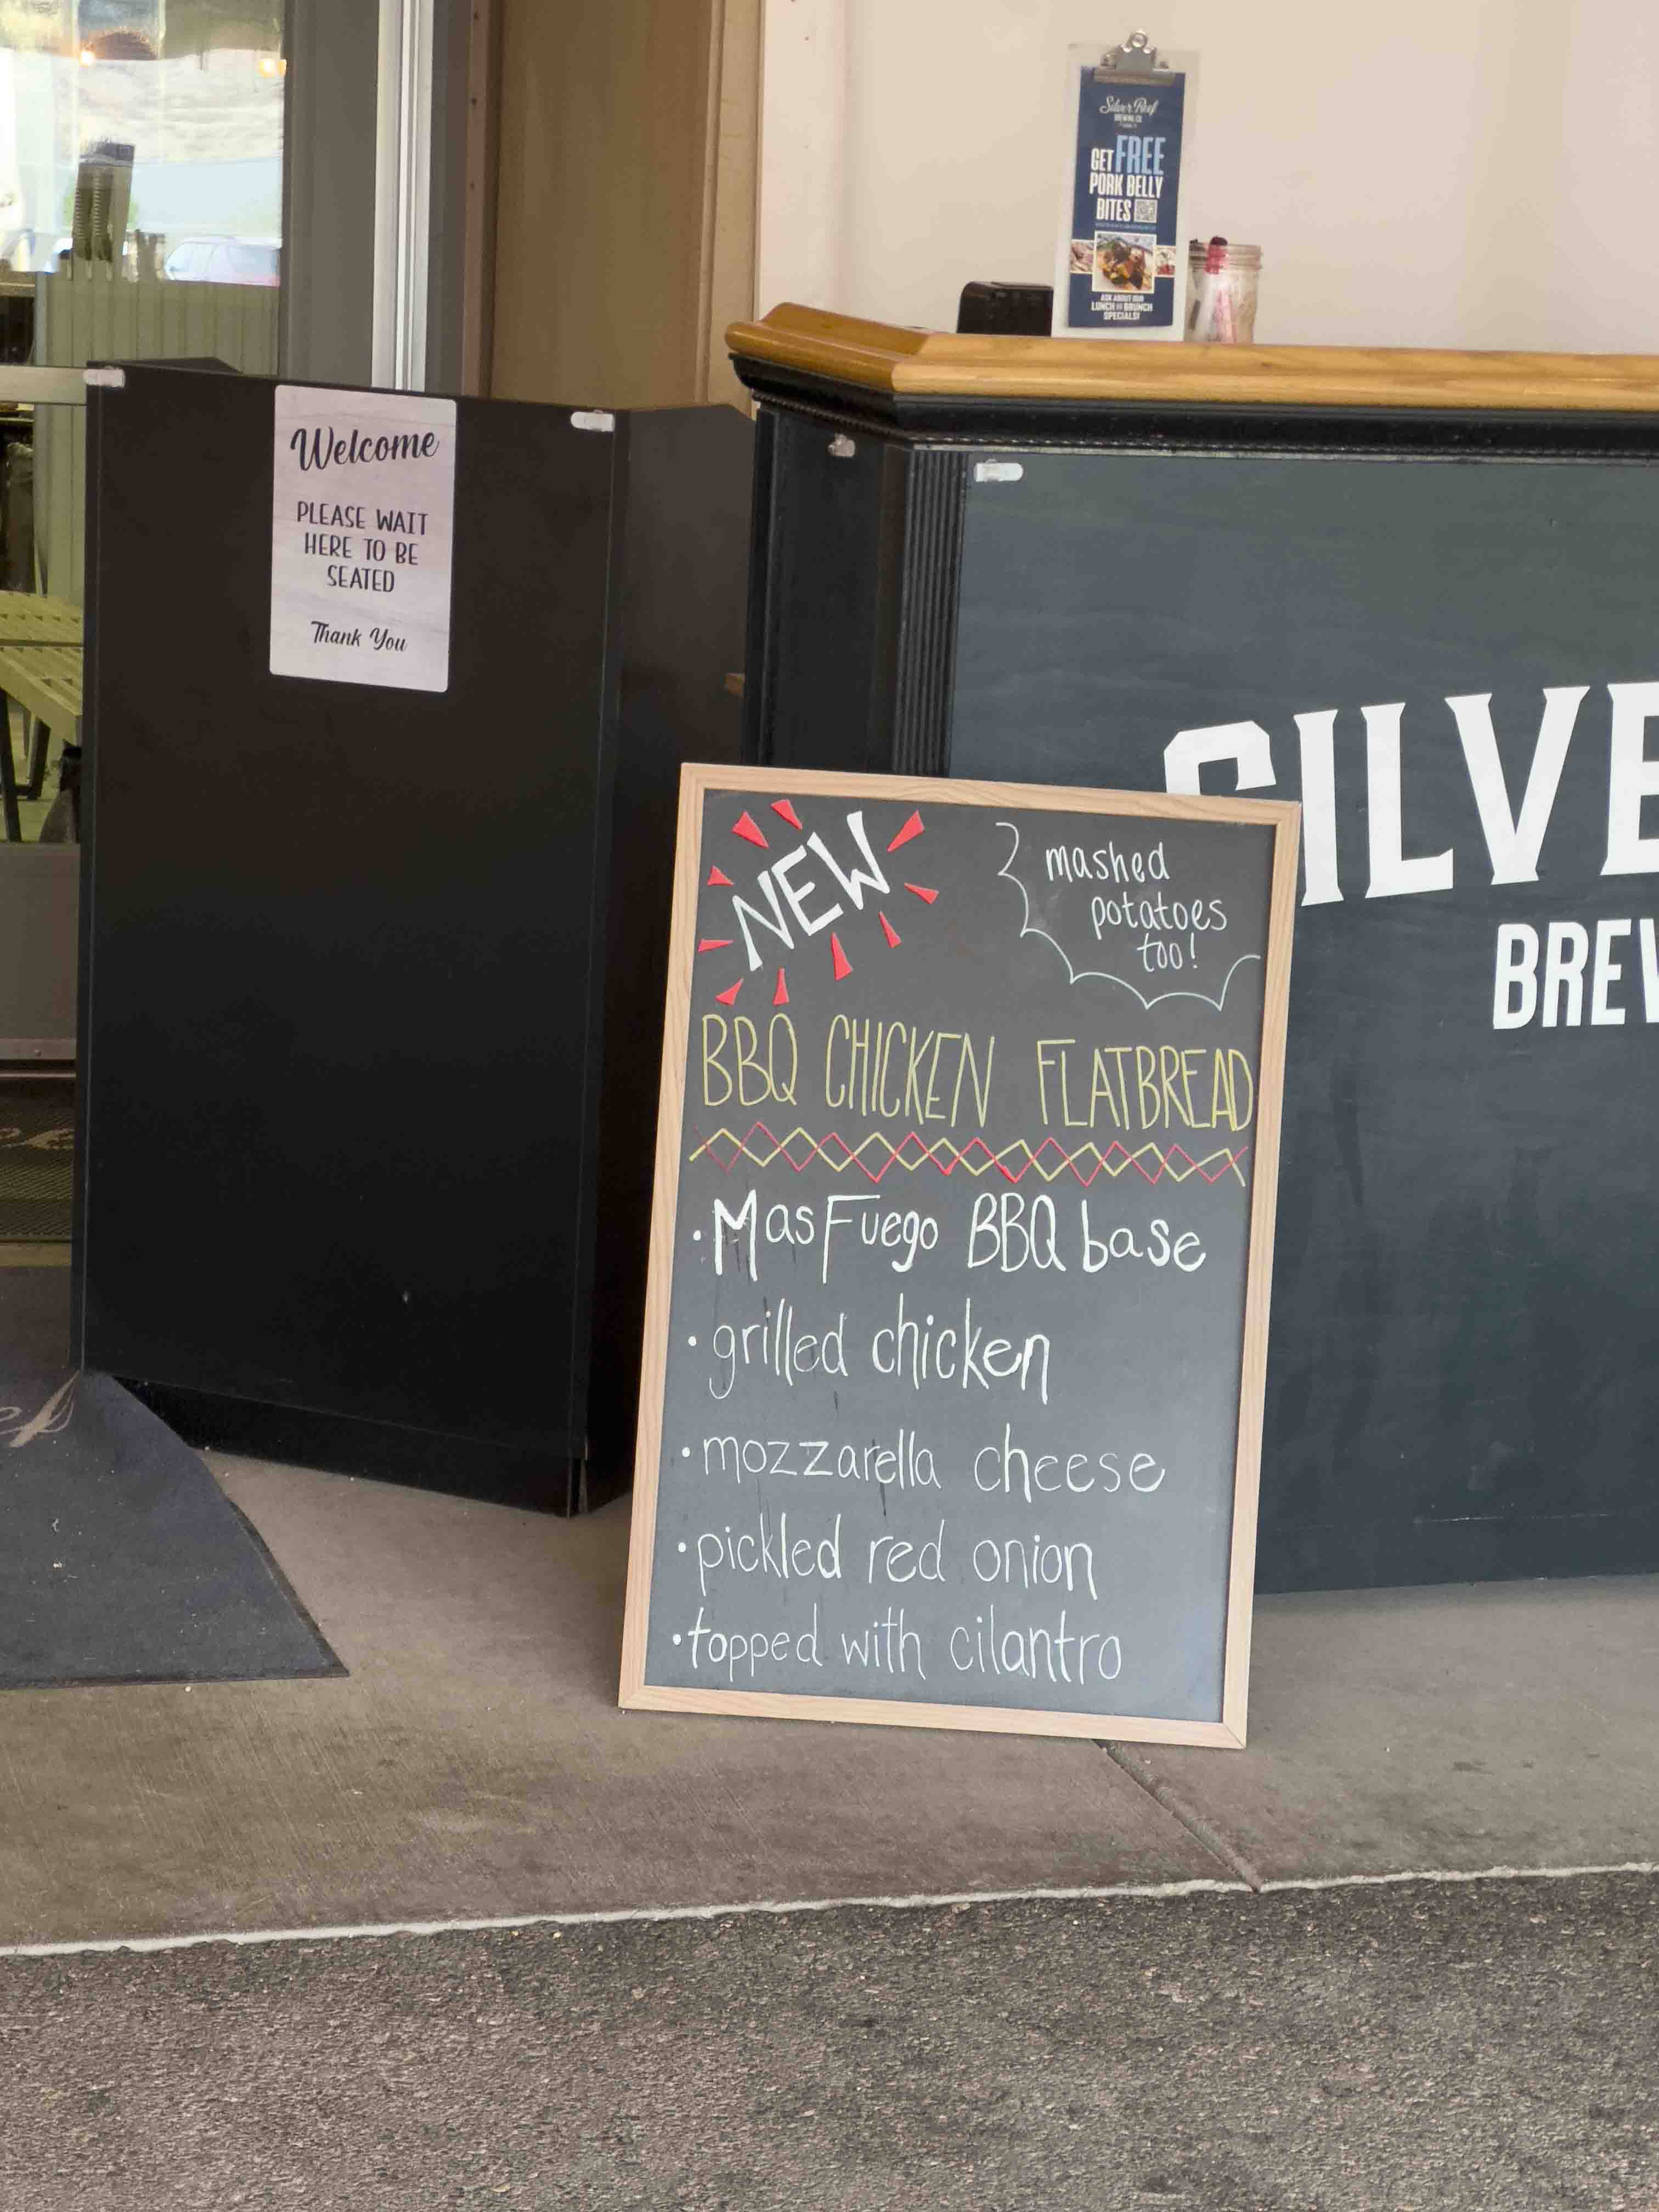 Silver Reef
BREWING CO.
GET FREE
PORK BELLY
BITES
ASK ABOUT OUR
LUNCH OR BRUNCH
SPECIALS!
Welcome
PLEASE WAIT
HERE TO BE
SEATED
Thank You
SILVE
BREW
NEW
mashed
potatoes
too!
BBQ CHICKEN FLATBREAD
• Mas Fuego BBQ base
• grilled chicken
• mozzarella cheese
• pickled red onion
• topped with cilantro